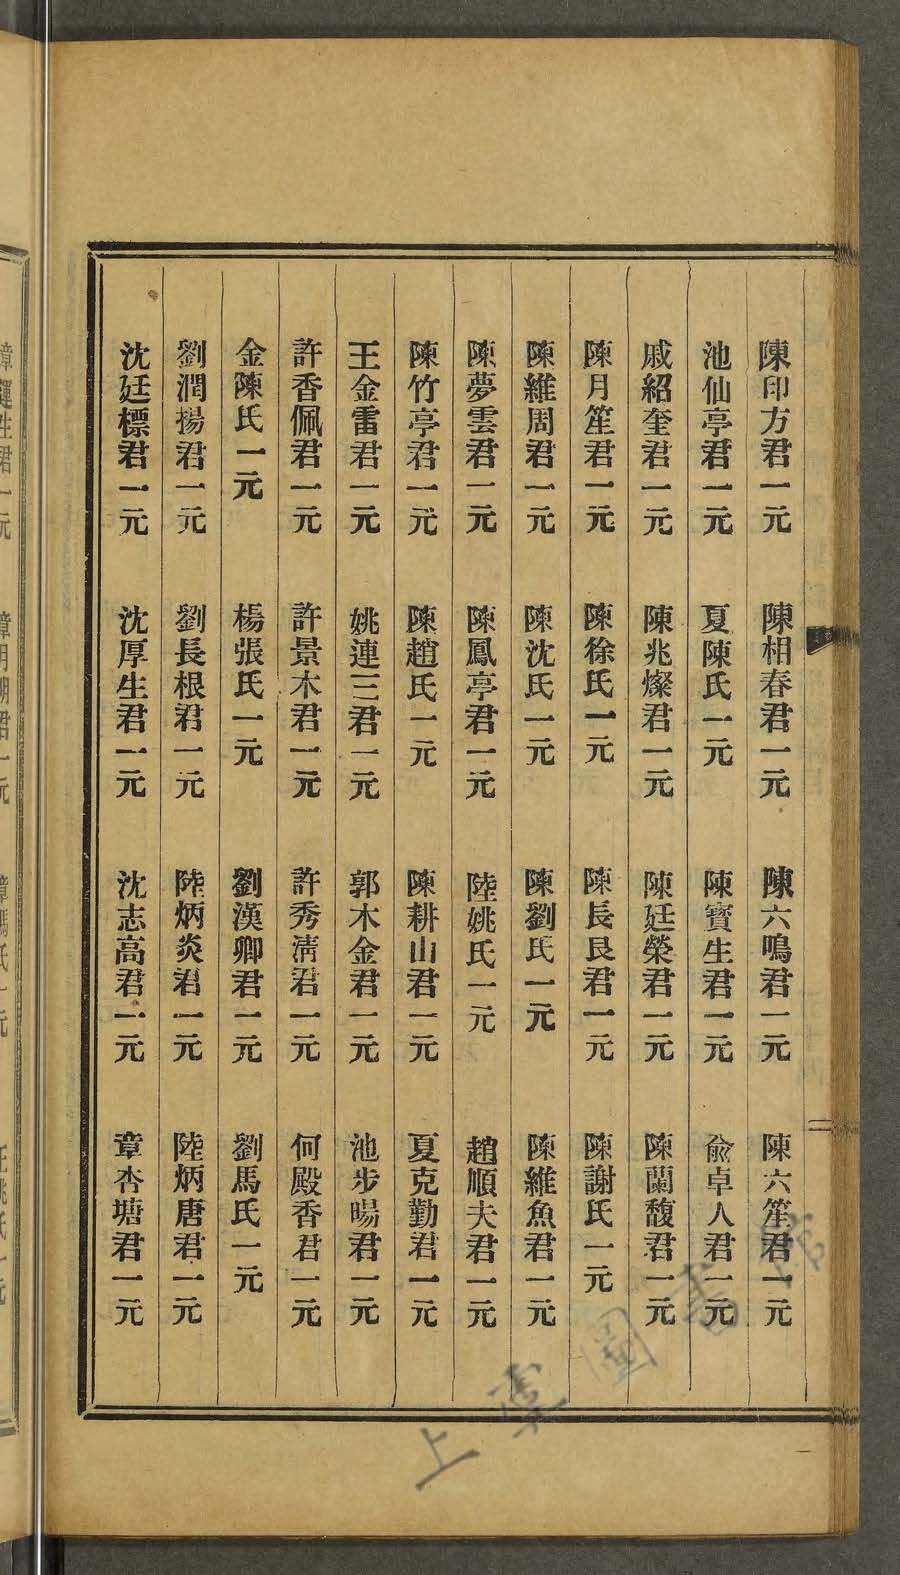 陳印方君一元　陳相春君一元　陳六鳴君一元　陳六笙君一元
池仙亭君一元　夏陳氏一元　陳寶生君一元　兪卓人君一元
戚紹奎君一元　陳兆燦君一元　陳廷榮君一元　陳蘭馥君一元
陳月笙君一元　陳徐氏一元　陳長艮君一元　陳謝氏一元
陳維周君一元　陳沈氏一元　陳劉氏一元　陳維魚君一元
陳夢雲君一元　陳鳳亭君一元　陸姚氏一元　趙順夫君一元
陳竹亭君一元　陳趙氏一元　陳耕山君一元　夏克勤君一元
王金雷君一元　姚連三君一元　郭木金君一元　池步暘君一元
許香佩君一元　許景木君一元　許秀清君一元　何殿香君一元
金陳氏一元　楊張氏一元　劉漢卿君一元　劉馬氏一元
劉潤揚君一元　劉長根君一元　陸炳炎君一元　陸炳唐君一元
沈廷標君一元　沈厚生君一元　沈志高君一元　章杏塘君一元
二
上虞圖書館